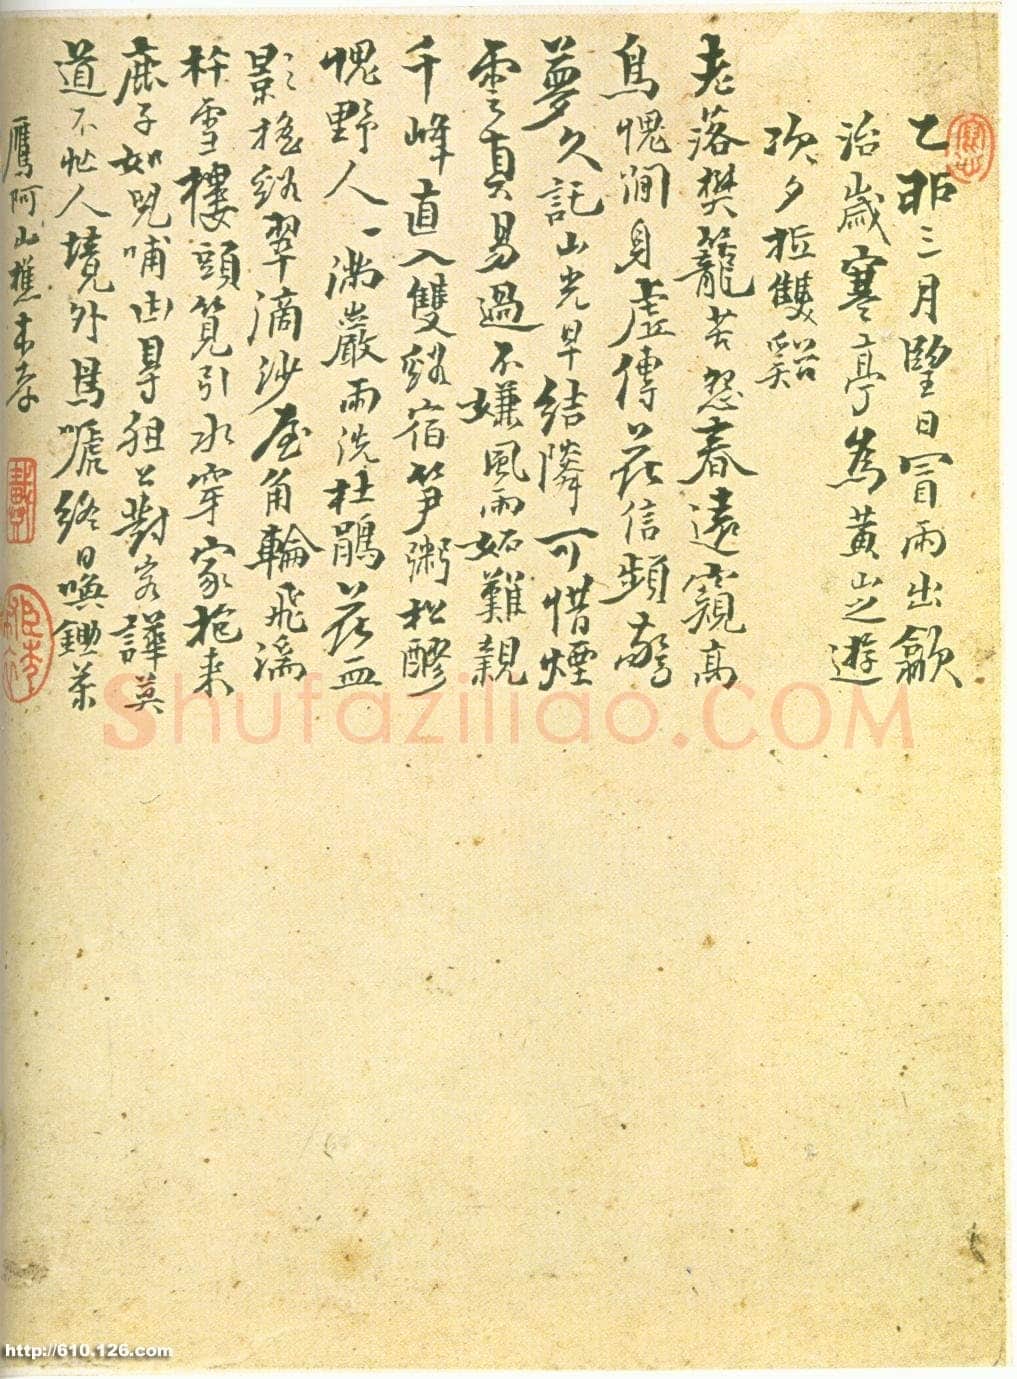 乙卯三月望日冒雨出歙
治歲寒亭為黃山之遊
次夕抵雙谿
老落樊籠苦怨春遠窺高
鳥愧閒身虛傳花信頻驚
夢久託山光早結隣可惜煙
雲真易過不嫌風雨妬難親
千峰直入雙谿宿筍粥松醪
愧野人一滿巖雨洗杜鵑花血
影搖谿翠滴沙屋角輪飛湍
杵雪樓頭筧引水穿家抱來
鹿子如兒哺 尋狙公對客譁莫
道不忙人境外馬嘶終日喚鋤茶
鷹阿山樵本孝
Shufaziliao.COM
http://610.126.com